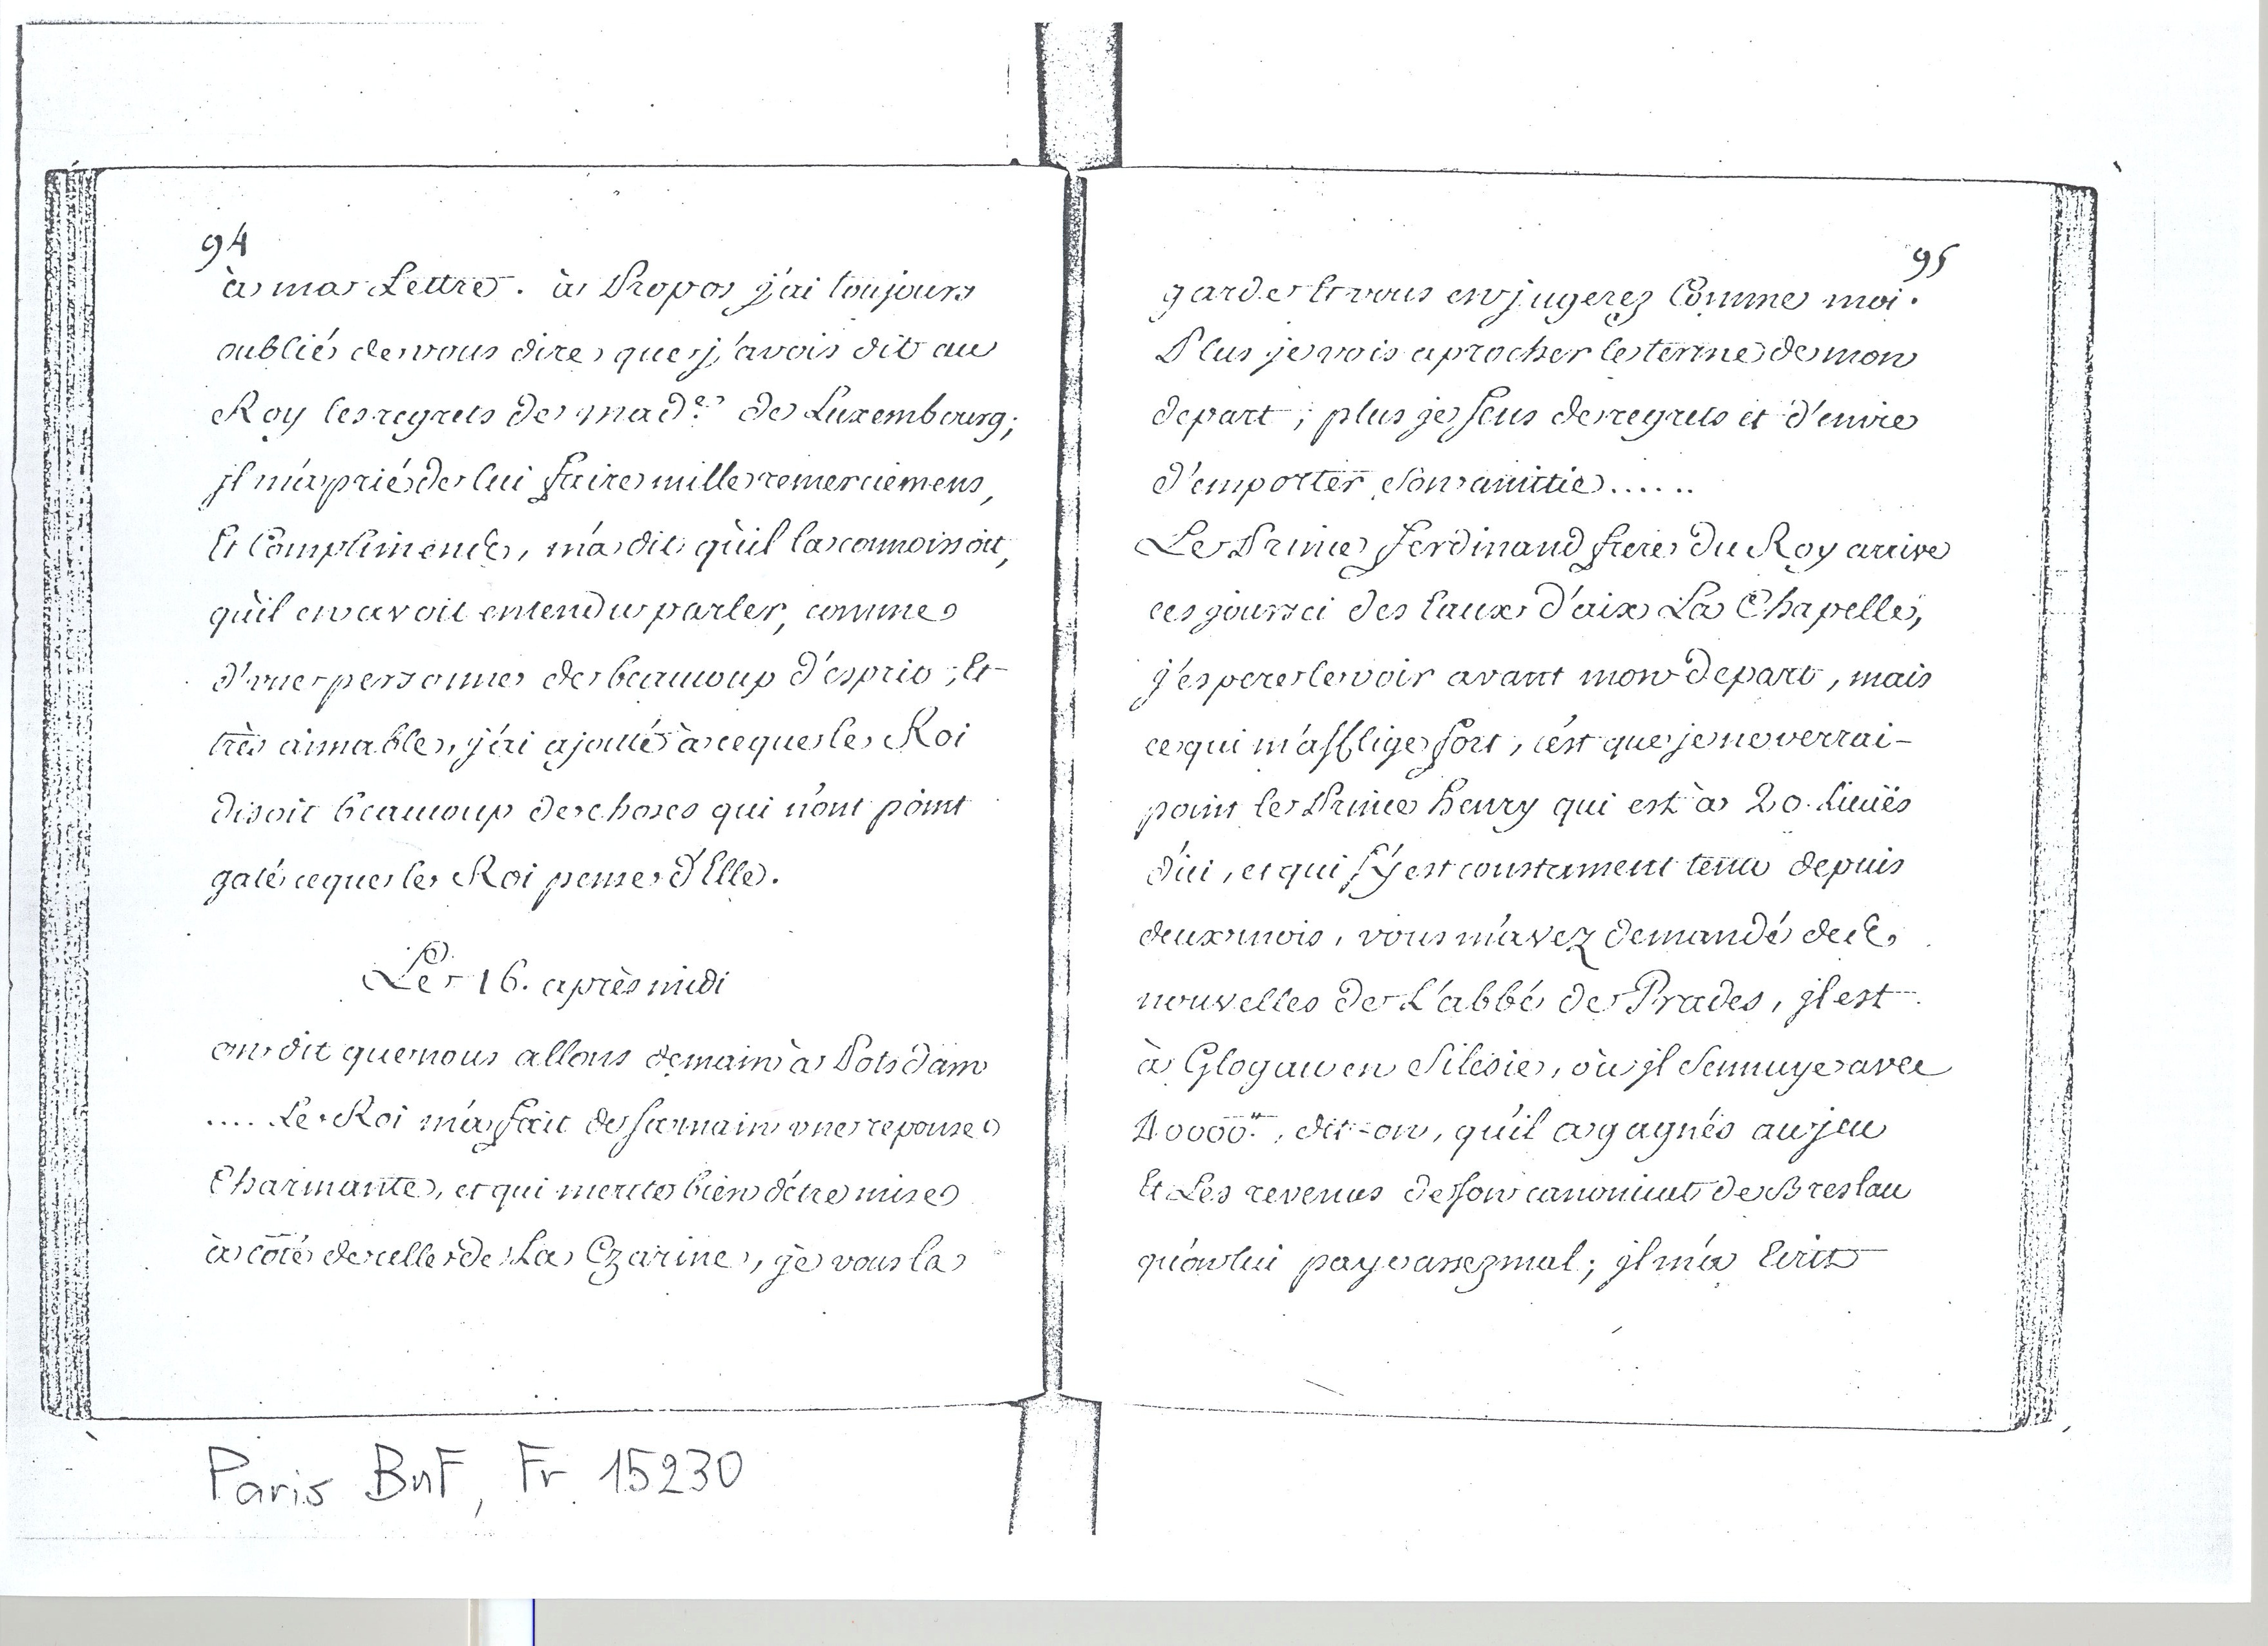 94
à ma Lettre. à Propos j'ai toujours
oublié de vous dire que j'avois dit au
Roy les regrets de mad.e de Luxembourg;
jl m'a prié de lui faire mille remerciemens,
Et Complimens, m'a dit qu'il la connoissoit,
qu'il en avoit entendu parler, comme
d'une personne de beaucoup d'esprit, Et
très aimable, j'ai ajouté à ce que le Roi
disoit beaucoup de choses qui n'ont point
gaté ce que le Roi pense d'Elle.
Le 16. après midi
on dit que nous allons demain à Potsdam
.... Le Roi m'a fait de sa main une reponse
Charmante, et qui merite bien d'être mise
à côté de celle de La Czarine, je vous la
95
garde Et vous en jugerez Comme moi.
Plus je vois aprocher le terme de mon
depart; plus je sens de regrets et d'envie
d'emporter son amitie......
Le Prince ferdinand frere du Roy arrive
ces jours ci des Eaux d'aix La Chapelle,
j'espere le voir avant mon depart, mais
ce qui m'afflige fort, c'est que je ne verrai
point le Prince henry qui est à 20. Lieües
d'ici, et qui s'y est constament tenu depuis
deux mois, vous m'avez demandé des
nouvelles de L'abbé de Prades, jl est
à Glogau en Silesie, où jl s'ennuye avec
40000.ᵗᵗ, dit-on, qu'il a gagnés au jeu
Et Les revenus de son canonicat de Breslau
qu'on lui paye assez mal; jl m'a Ecrit
Paris BnF, Fr. 15230